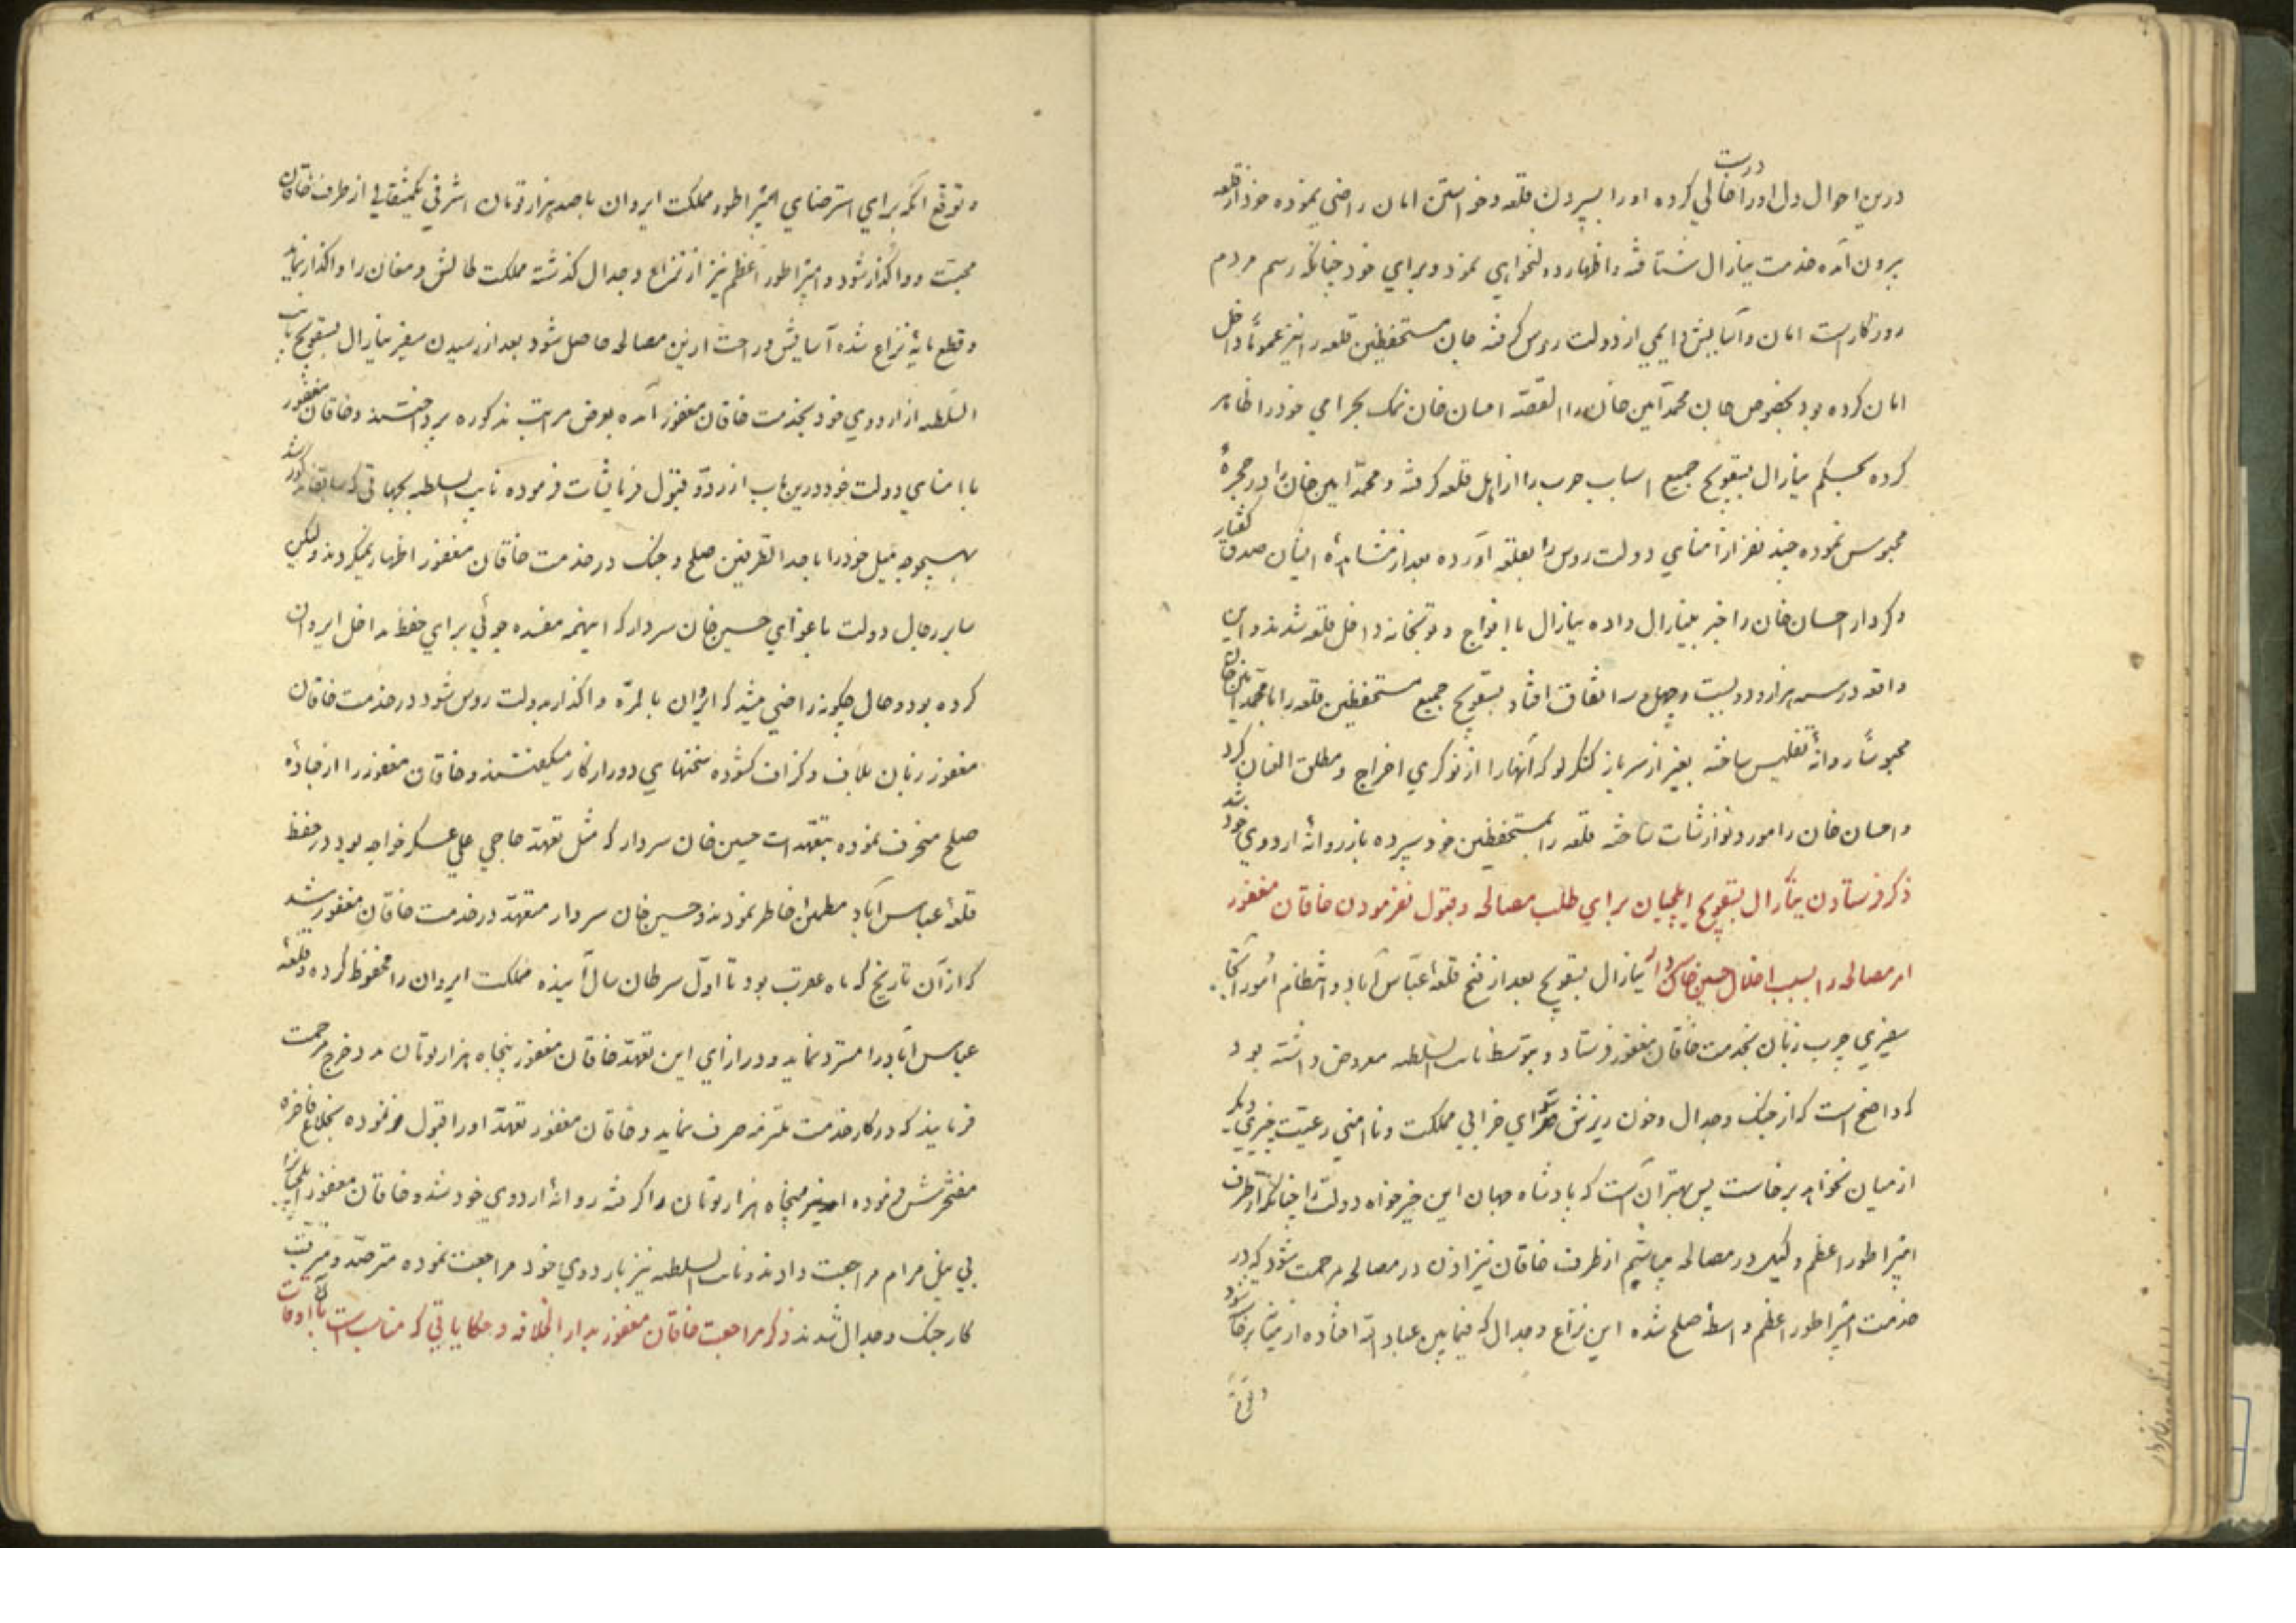 درین احوال دل او را درست خالی کرده او را بسپردن قلعه و خواستن امان راضی نموده خود از قلعه
برون آمده خدمت ینارال شتافته و اظهار دولتخواهی نمود و برای خود چنانکه رسم مردم
روزگار است امان و آسایش دایمی از دولت روس گرفته جان مستحفظین قلعه را نیز عموماً داخل
امان کرده بود بخصوص جان محمد امین خان را القصّه احسان خان نمک بحرامی خود را ظاهر
کرده بحکم ینارال بسقویچ جمیع اسباب حرب را از اهل قلعه گرفته و محمد امین خان را در حجرهٔ
محبوس نموده چند نفر از امنای دولت روس را بقلعه آورده بعد از مشاهدهٔ ایشان صدق گفتار
و کردار احسان خان را خبر بینارال داده ینارال با افواج و توپخانه داخل قلعه شدند و این
واقعه در سنه هزار و دویست و چهل و سه اتفاق افتاد بسقویچ جمیع مستحفظین قلعه را با محمد امین خان
محبوساً روانهٔ تفلیس ساخته بغیر از سرباز کنکرلو که آنها را از نوکری اخراج و مطلق العنان کرد
و احسان خان را مورد نوازشات ساخته قلعه را بمستحفظین خود سپرده باز روانهٔ اردوی خود شد
ذکر فرستادن ینارال بسقویچ ایلچیان برای طلب مصالحه و قبول نفرمودن خاقان مغفور
امر مصالحه را بسبب اخلال حسین خان سردار ینارال بسقویچ بعد از فتح قلعهٔ عباس آباد و انتظام امور آنجا
سفیری چرب زبان بخدمت خاقان مغفور فرستاد و بتوسط نایب السلطنه معروض داشته بود
که واضح است که از جنگ و جدال و خون ریزش سوای خرابی مملکت و ناامنی رعیت چیزی دیگر
از میان نخواهد برخاست پس بهتر آنست که پادشاه جهان این خیرخواه دولت را چنانکه از طرف
امپراطور اعظم وکیل در مصالحه میباشم از طرف خاقان نیز اذن در مصالحه مرحمت شود که در
خدمت امپراطور اعظم واسطهٔ صلح شده این نزاع و جدال که فیمابین عباد الله افتاده از میان برخاسته شود
و توقع آنکه برای استرضای امپراطور مملکت ایروان با صد هزار تومان اشرفی یکمثقالی از طرف خاقان
محبت و واگذار شود و امپراطور اعظم نیز از نزاع و جدال گذشته مملکت طالش و مغان را واگذار نماید
و قطع مایهٔ نزاع شده آسایش و راحت ازین مصالحه حاصل شود بعد از رسیدن سفیر ینارال بسقویچ نایب
السلطنه از اردوی خود بخدمت خاقان مغفور آمده بعرض مراتب مذکوره پرداختند و خاقان مغفور
با امنای دولت خود درین باب از ردّ و قبول فرمایشات فرموده نایب السلطنه بجهاتی که سابقاً مذکور شد
بهیچوجه میل خود را باحد الطرفین صلح و جنگ در خدمت خاقان مغفور اظهار نمیکردند ولیکن
سایر رجال دولت باغوای حسین خان سردار که اینهمه مفسده جوئی برای حفظ مداخل ایروان
کرده بود و حال چگونه راضی میشد که ایروان بالمرّه واگذار بدولت روس شود در خدمت خاقان
مغفور زبان بلاف و گزاف گشوده سخنهای دور از کار میگفتند و خاقان مغفور را از جادهٔ
صلح منحرف نموده بتعهدات حسین خان سردار که مثل تعهد حاجی علی عسکر خواجه بود در حفظ
قلعهٔ عباس آباد مطمئن خاطر نمودند و حسین خان سردار متعهد در خدمت خاقان مغفور شد
که از آن تاریخ که ماه عقرب بود تا اول سرطان سال آینده مملکت ایروان را محفوظ کرده و قلعهٔ
عباس آباد را مسترد نماید و در ازای این تعهد خاقان مغفور پنجاه هزار تومان مدد خرج مرحمت
فرمایند که در کار خدمت ملتزمه صرف نماید و خاقان مغفور تعهد او را قبول فرموده بخلاع فاخره
مفتخرش فرموده او نیز پنجاه هزار تومان را گرفته روانهٔ اردوی خود شد و خاقان مغفور ایلچیان را
بی نیل مرام مراجعت دادند و نایب السلطنه نیز باردوی خود مراجعت نموده مترصد و مترقب
کار جنگ و جدال شدند ذکر مراجعت خاقان مغفور بدار الخلافه و حکایاتی که مناسب است بآن اوقات